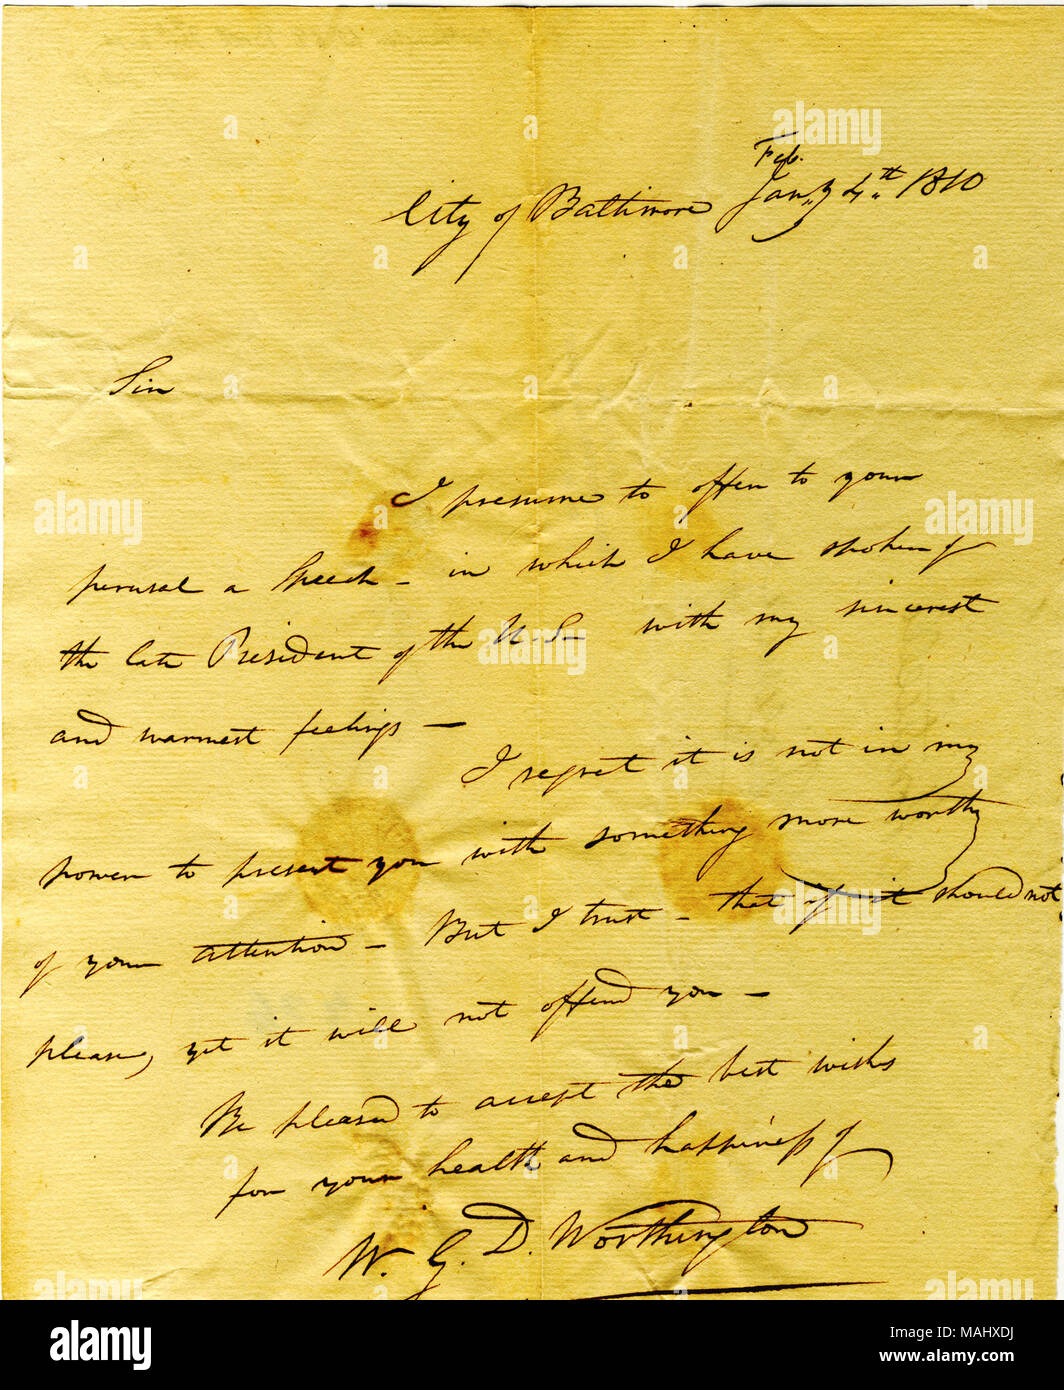 Feb.
City of Baltimore Jany. 4th. 1810
Sir
I presume to offer to your
perusal a Speech - in which I have spoken of
the late President of the U.S- with my sincerest
and warmest feelings -
I regret it is not in my
power to present you with something more worthy
of your attention - But I trust - that if it should not
please, yet it will not offend you -
Be pleased to accept the best wishes
for your health and happiness of
W. G. D. Worthington
alamy
Image ID: MAHXDJ
www.alamy.com